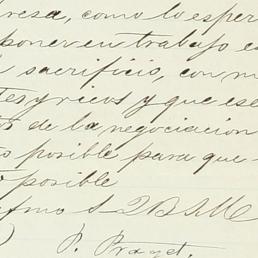 resa, como lo esper
poner en trabajo es
sacrificio, con m
tes y ricos y que ese
os de la negociacion
posible para que
posible
Atmo S Q B S M
P. Praget.